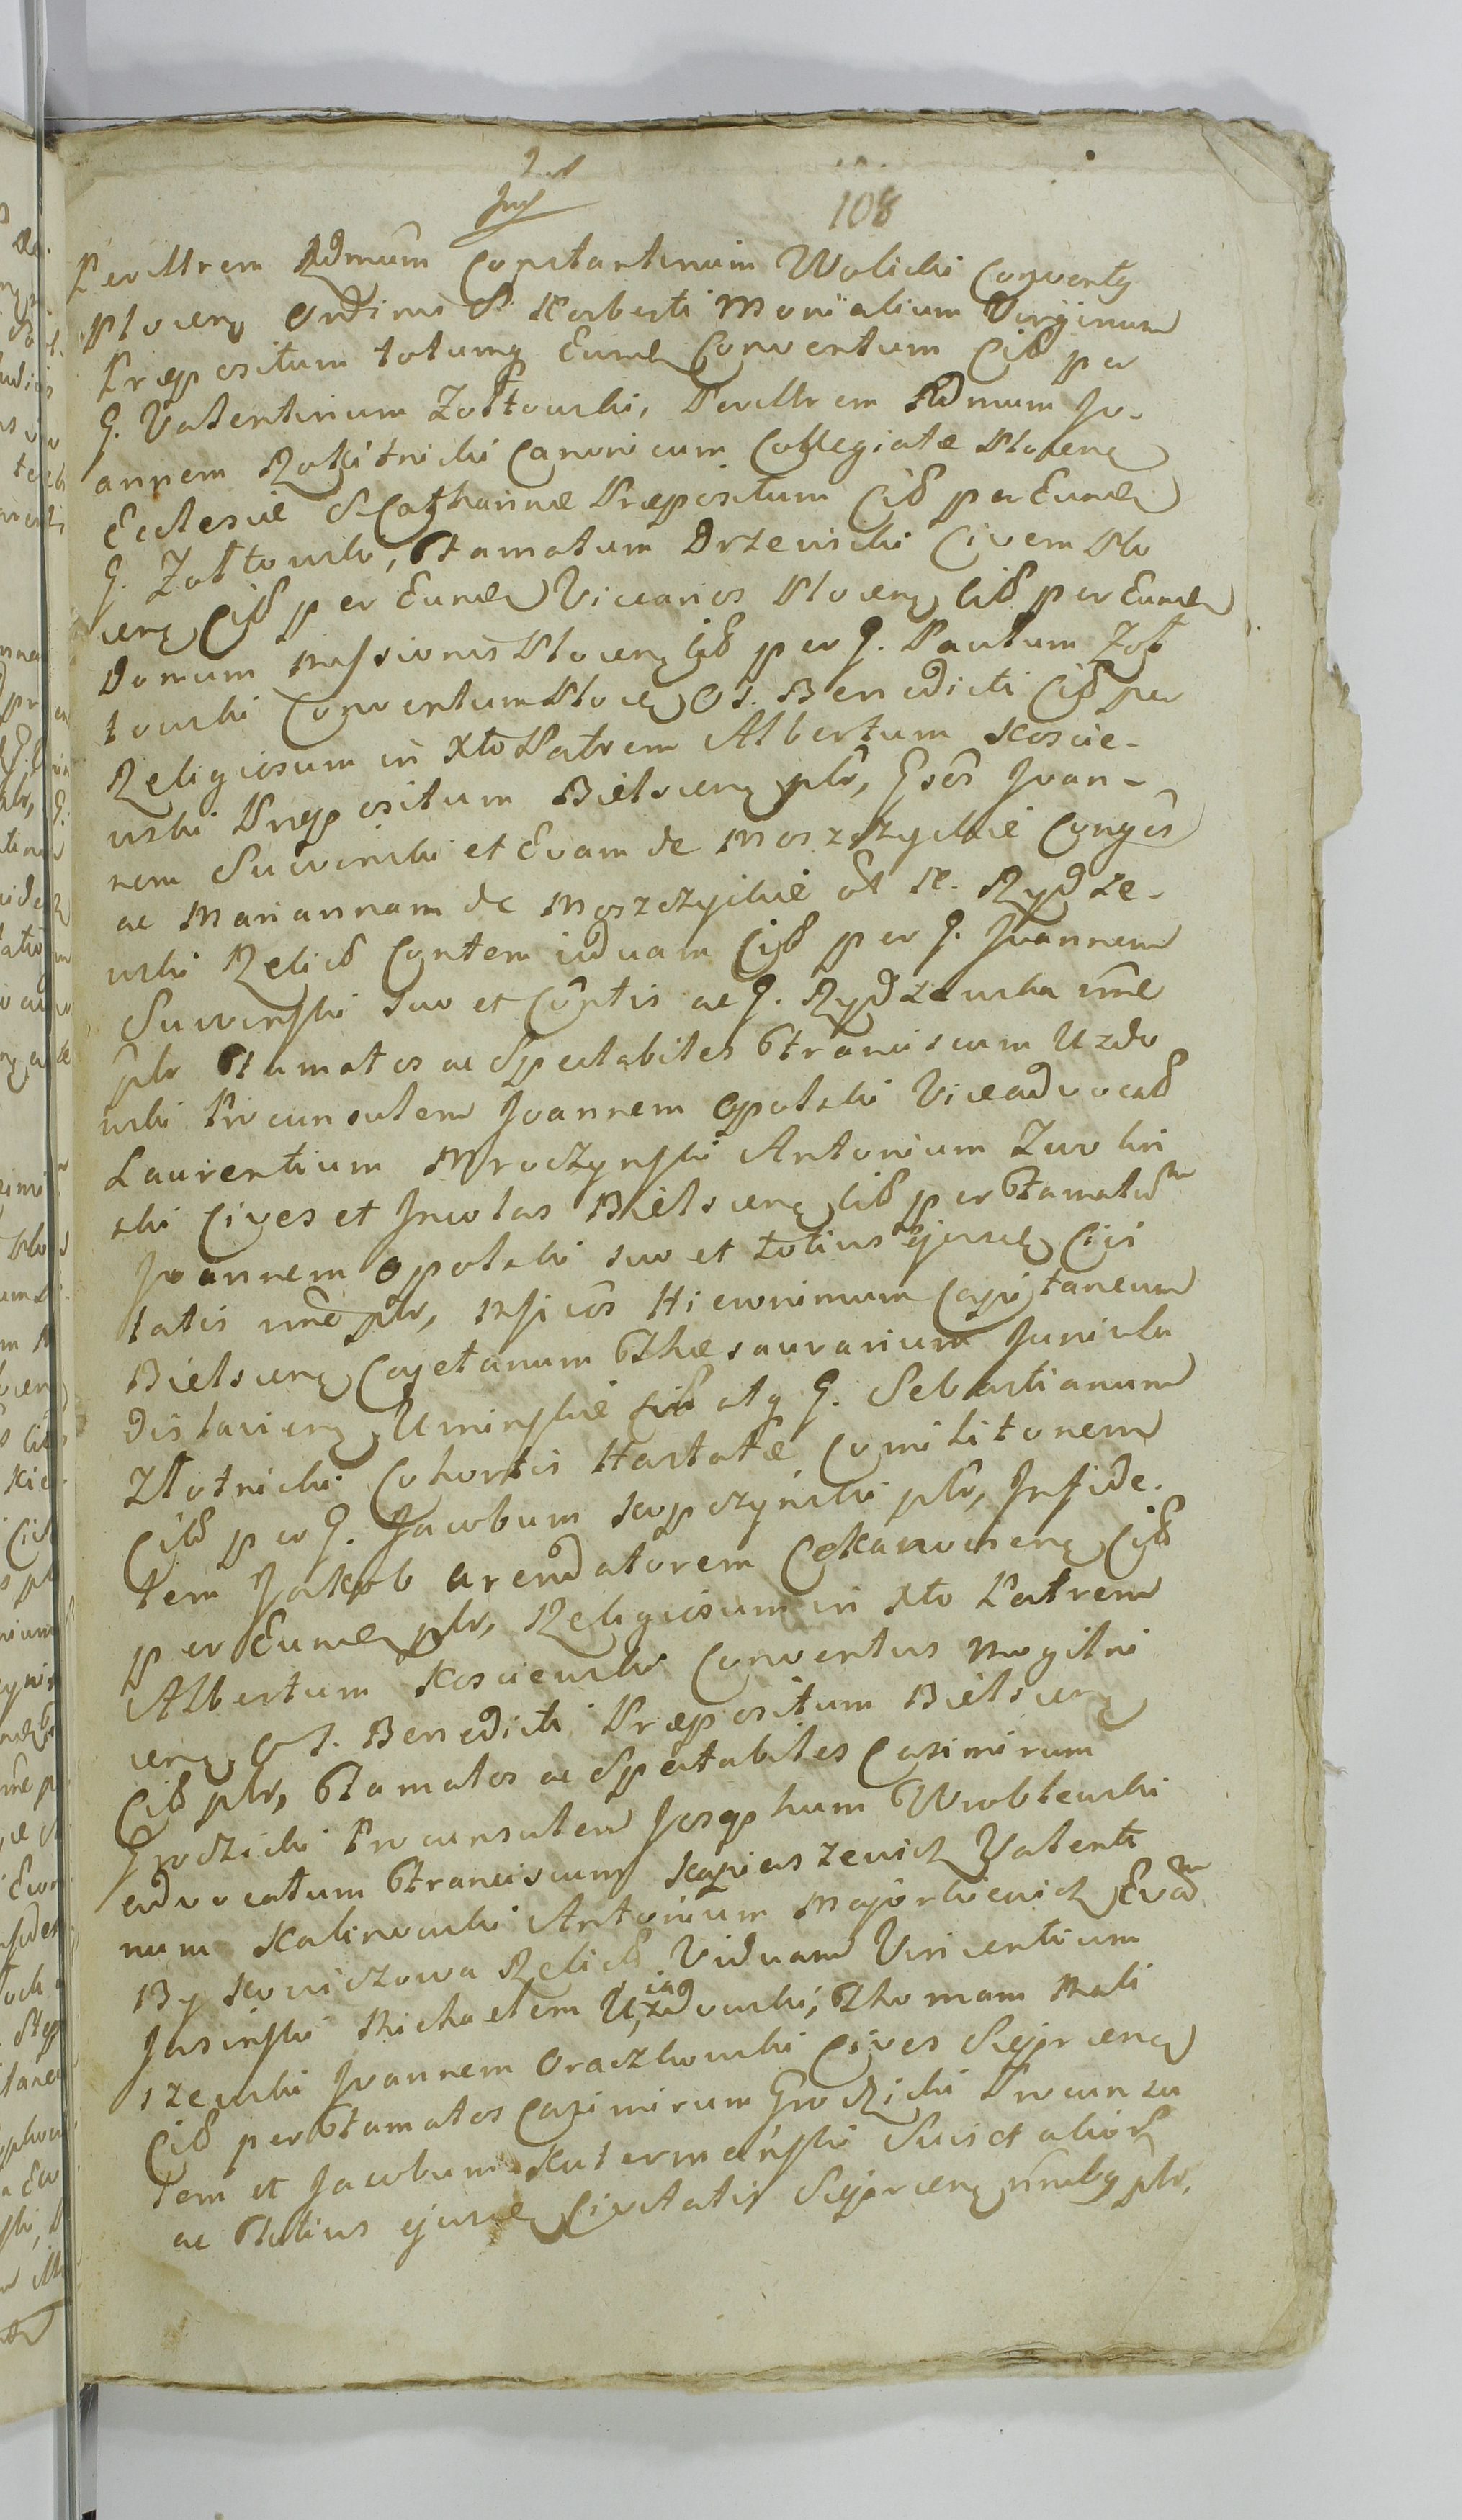 108
Perillrem Rdmum Constantinum Wolicki Convents
Plocens Ordinis S. Norberti Monialium Virginum
Præpositum totumq Eund Conventum Citt per
G. Valentinum Zołtowski, Perillrem Rdmum Jo-
annem Rokitnicki Canonicum Collegiatæ Plocens
Ecclesiæ S. Catharinæ Præpositum Citt per Eund
G. Zołtowski, Ftamatum Drzewicki Civem Plo
cens Citt per Eund Vicarios Plocens Citt per Eund
Domum Missionis Plocens Citt per G. Paulum Zoł
towski Conventum Ploc O S. Benedicti Citt per
Religiosum in Xto Patrem Albertum Koscie-
wski Præpositum Bielscens pltr, Gsos Joan-
nem Suwinski et Evam de Moszczyckie Conges
ac Mariannam de Moszczyckie ol N. Rydze-
wski Relict Contem viduam Citt per G. Joannem
Suwinski suo et Contis ac G. Rydzewska nne
pltr Ftamatos ac Spectabiles Franciscum Uzdo
wski Proconsulem Joannem Opolski Viceadvocatt
Laurentium Mroczynski Antonium Zwolin
ski Cives et Incolas Bielscens Citt per Ftamatum
Joannem Opolski suo et totius ejusd Civi
tatis nne pltr, Mficos Hieronimum Capitaneum
Bielscens Cajetanum Thesaurarium Juniwla
dislaviens Uminskie Citt atq G. Sebastianum
Złotnicki Cohortis Hastatæ Comilitonem
Citt per G. Jacobum Kopczynski pltr, Infide-
lem Jakob Arendatorem Cekanowsens Citt
per Eund pltr, Religiosum in Xto Patrem
Albertum Kosciewski Conventus Mogilni
cens O S. Benedicti Præpositum Bielscens
Citt pltr, Ftamatos ac Spectabiles Casimirum
Grodzicki Proconsulem Josephum Wroblewski
advocatum Franciscum Kapiaszewicz Valenti
num Kalinowski Antonium Majorkiewicz Evam
Bykowiczowa Relict Viduam Vincentium
Jasinski Michaelem Uzdowski, Thomam Mali
szewski Joannem Oraczkowski Cives Sieprcens
Citt per Ftamatos Casimirum Grodzicki Proconsu
lem et Jacobum Kutermanski Suis et alior
ac Totius ejusd Civitatis Sieprcens nnibq pltr,